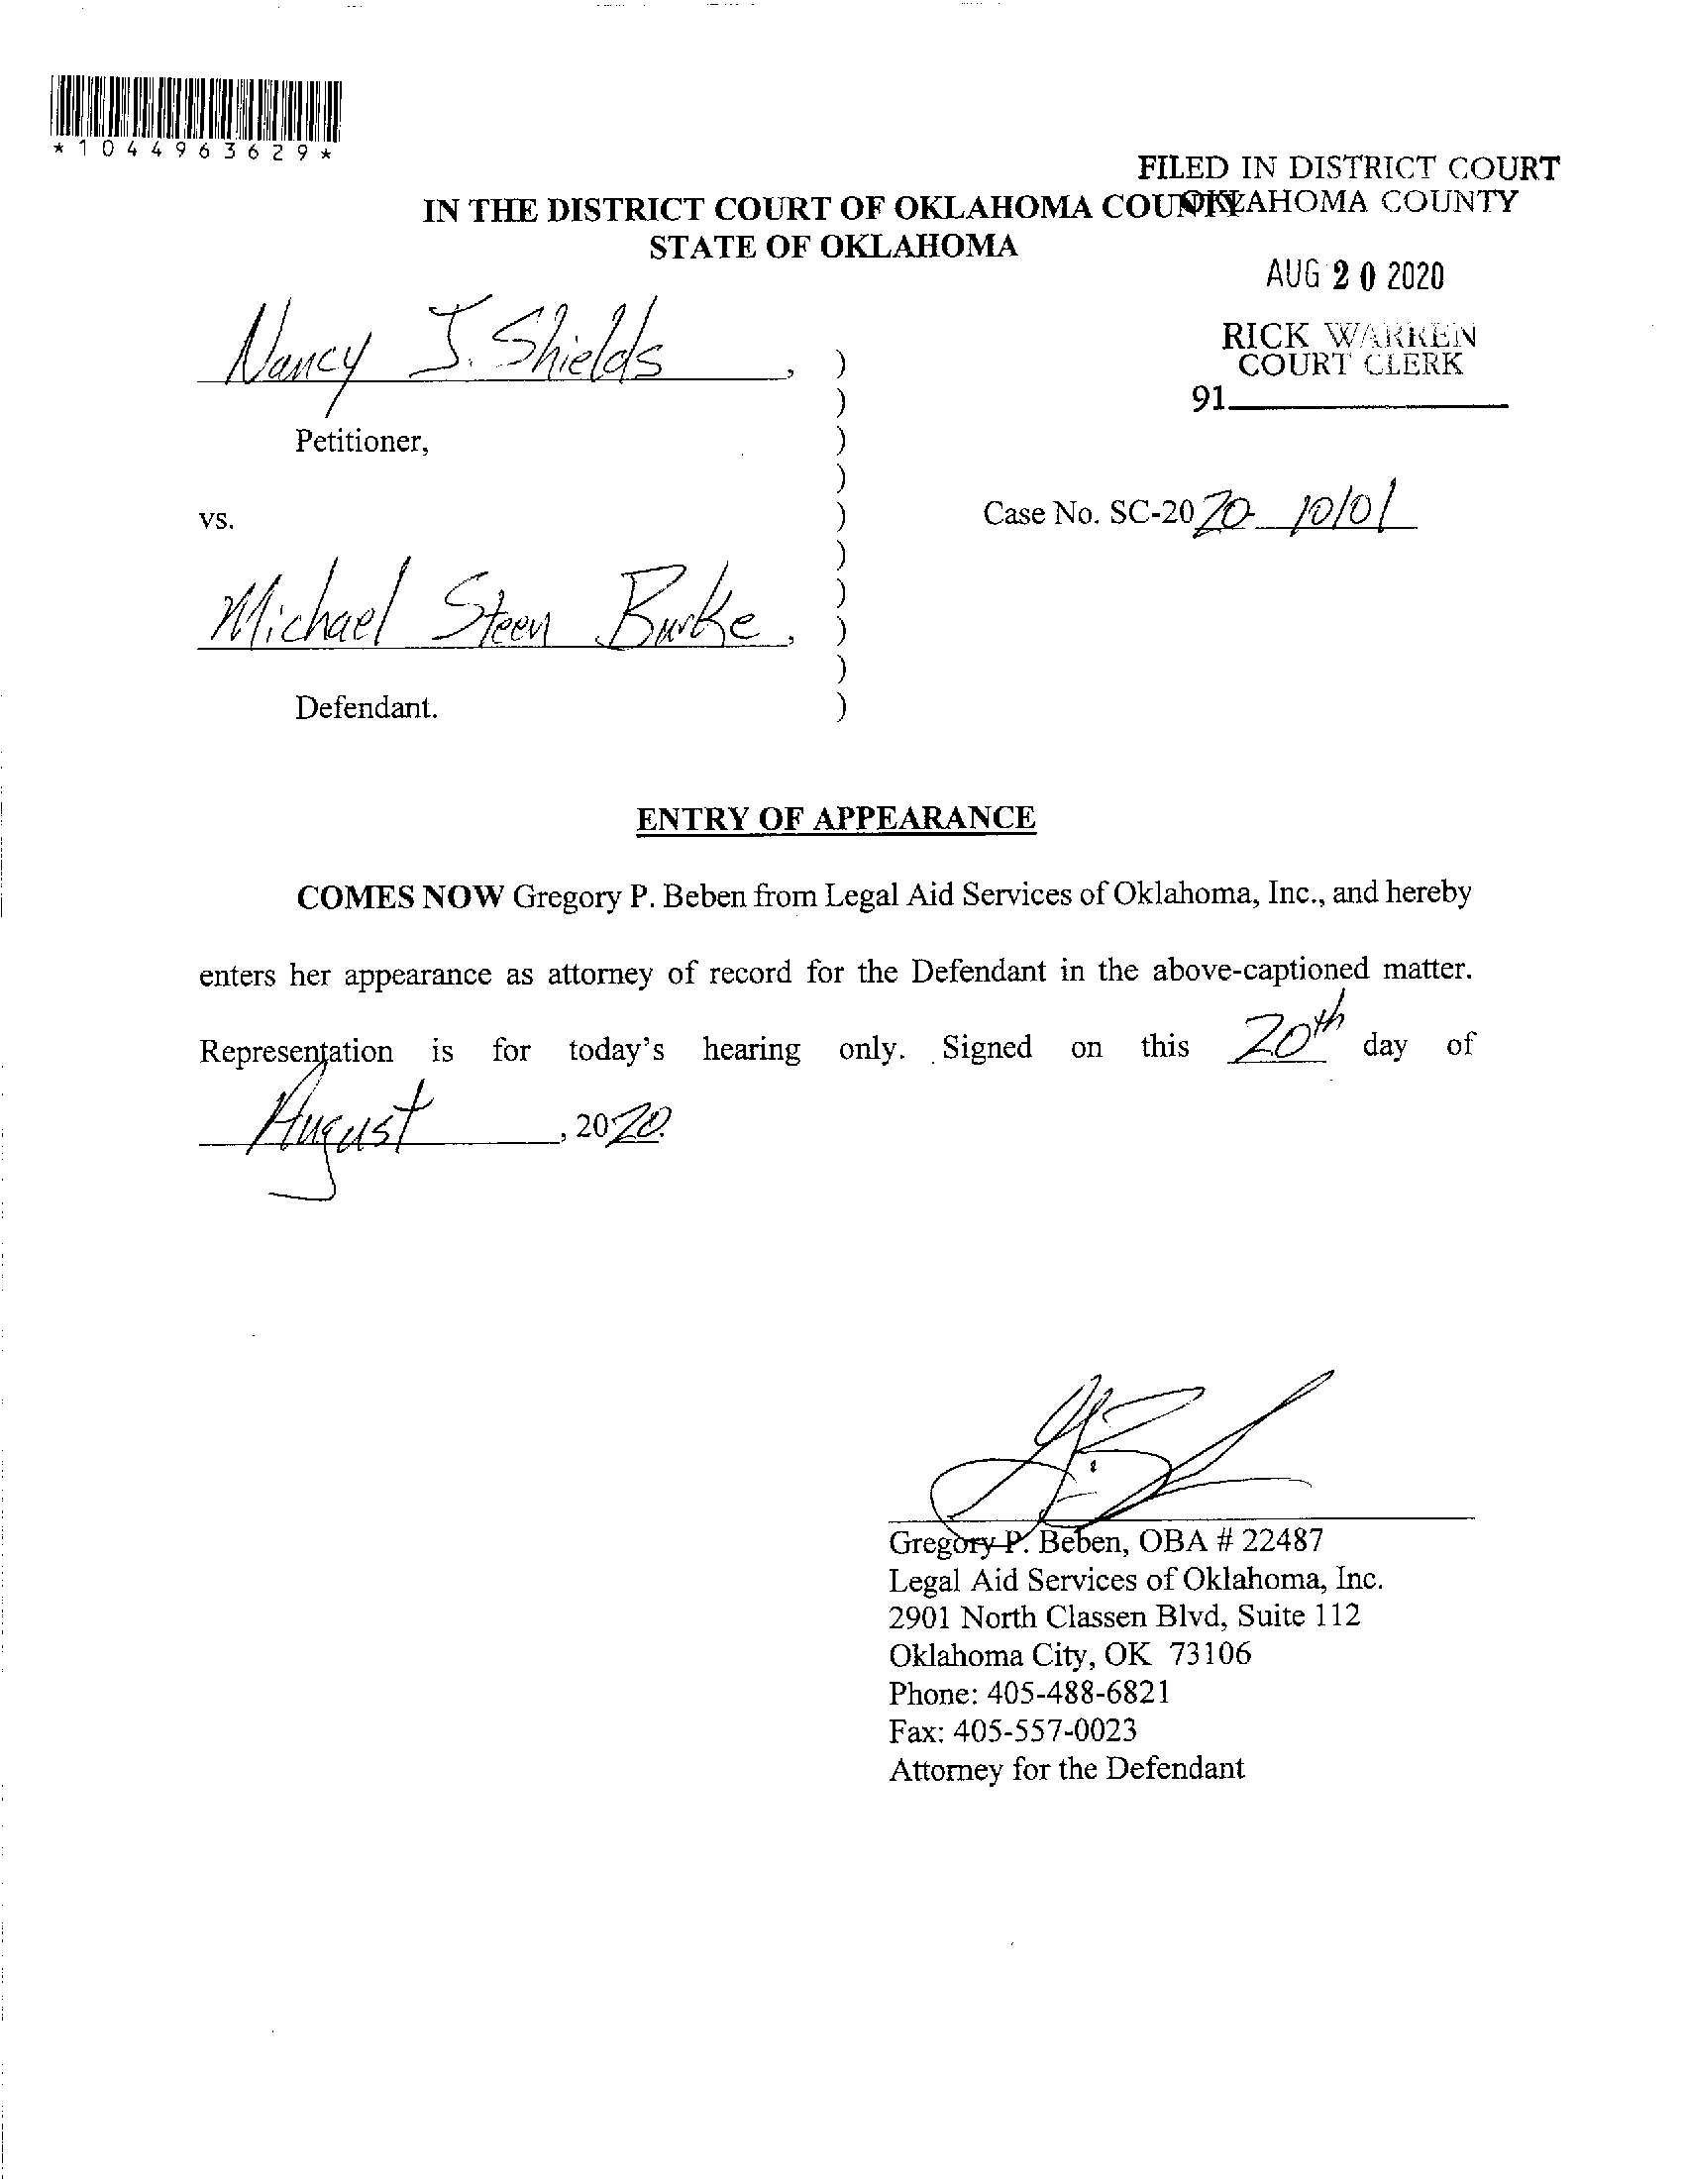 *1044963629*
FILED IN DISTRICT COURT
OKLAHOMA COUNTY
IN THE DISTRICT COURT OF OKLAHOMA COUNTY
STATE OF OKLAHOMA
AUG 20 2020
RICK WARREN
COURT CLERK
91
Nancy J. Shields, )
)
Petitioner, )
)
vs. )
Case No. SC-2020-10101
)
)
Michael Steen Burke, )
)
Defendant. )
ENTRY OF APPEARANCE
COMES NOW Gregory P. Beben from Legal Aid Services of Oklahoma, Inc., and hereby
enters her appearance as attorney of record for the Defendant in the above-captioned matter.
Representation is for today's hearing only. Signed on this 20th day of
August, 2020.
Gregory P. Beben, OBA # 22487
Legal Aid Services of Oklahoma, Inc.
2901 North Classen Blvd, Suite 112
Oklahoma City, OK 73106
Phone: 405-488-6821
Fax: 405-557-0023
Attorney for the Defendant